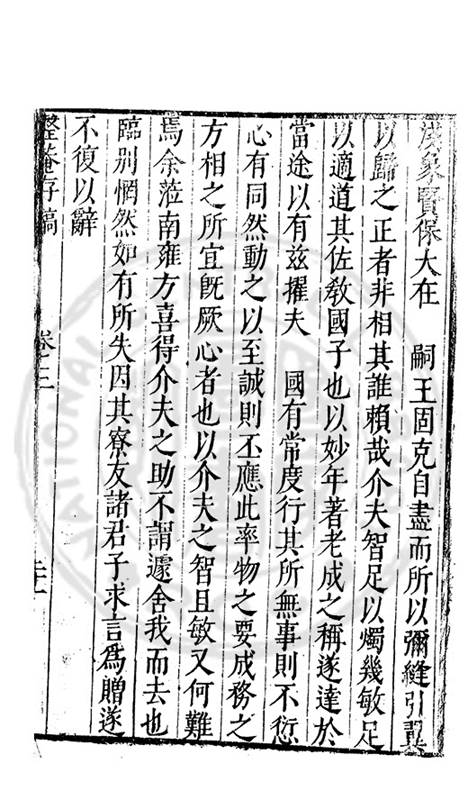 淺象賢保大在　嗣王固克自盡而所以彌縫引翼
以歸之正者非相其誰賴哉介夫智足以燭幾敏足
以適道其佐敎國子也以妙年著老成之稱遂達於
當途以有茲擢夫　國有常度行其所無事則不愆
心有同然動之以至誠則丕應此率物之要成務之
方相之所宜旣厥心者也以介夫之智且敏又何難
焉余蒞南雍方喜得介夫之助不謂遽舍我而去也
臨别惘然如有所失因其寮友諸君子求言爲贈遂
不復以辭
整菴存稿
卷之三